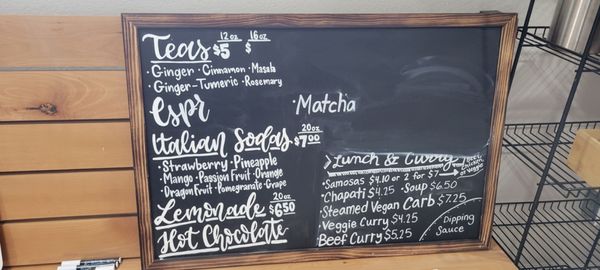 Teas 12 oz $5 16 oz $
· Ginger · Cinnamon · Masala
· Ginger-Tumeric · Rosemary
Espr
· Matcha
Italian Sodas 20oz $7.00
· Strawberry · Pineapple
· Mango · Passion Fruit · Orange
· Dragon Fruit · Pomegranate · Grape
Lemonade 20oz $6.50
Hot Chocolate
Lunch & Curry
· Samosas $4.10 or 2 for $7
· Chapati $4.25 · Soup $6.50
· Steamed Vegan Carb $7.25
· Veggie Curry $4.25
Beef Curry $5.25
Dipping
Sauce